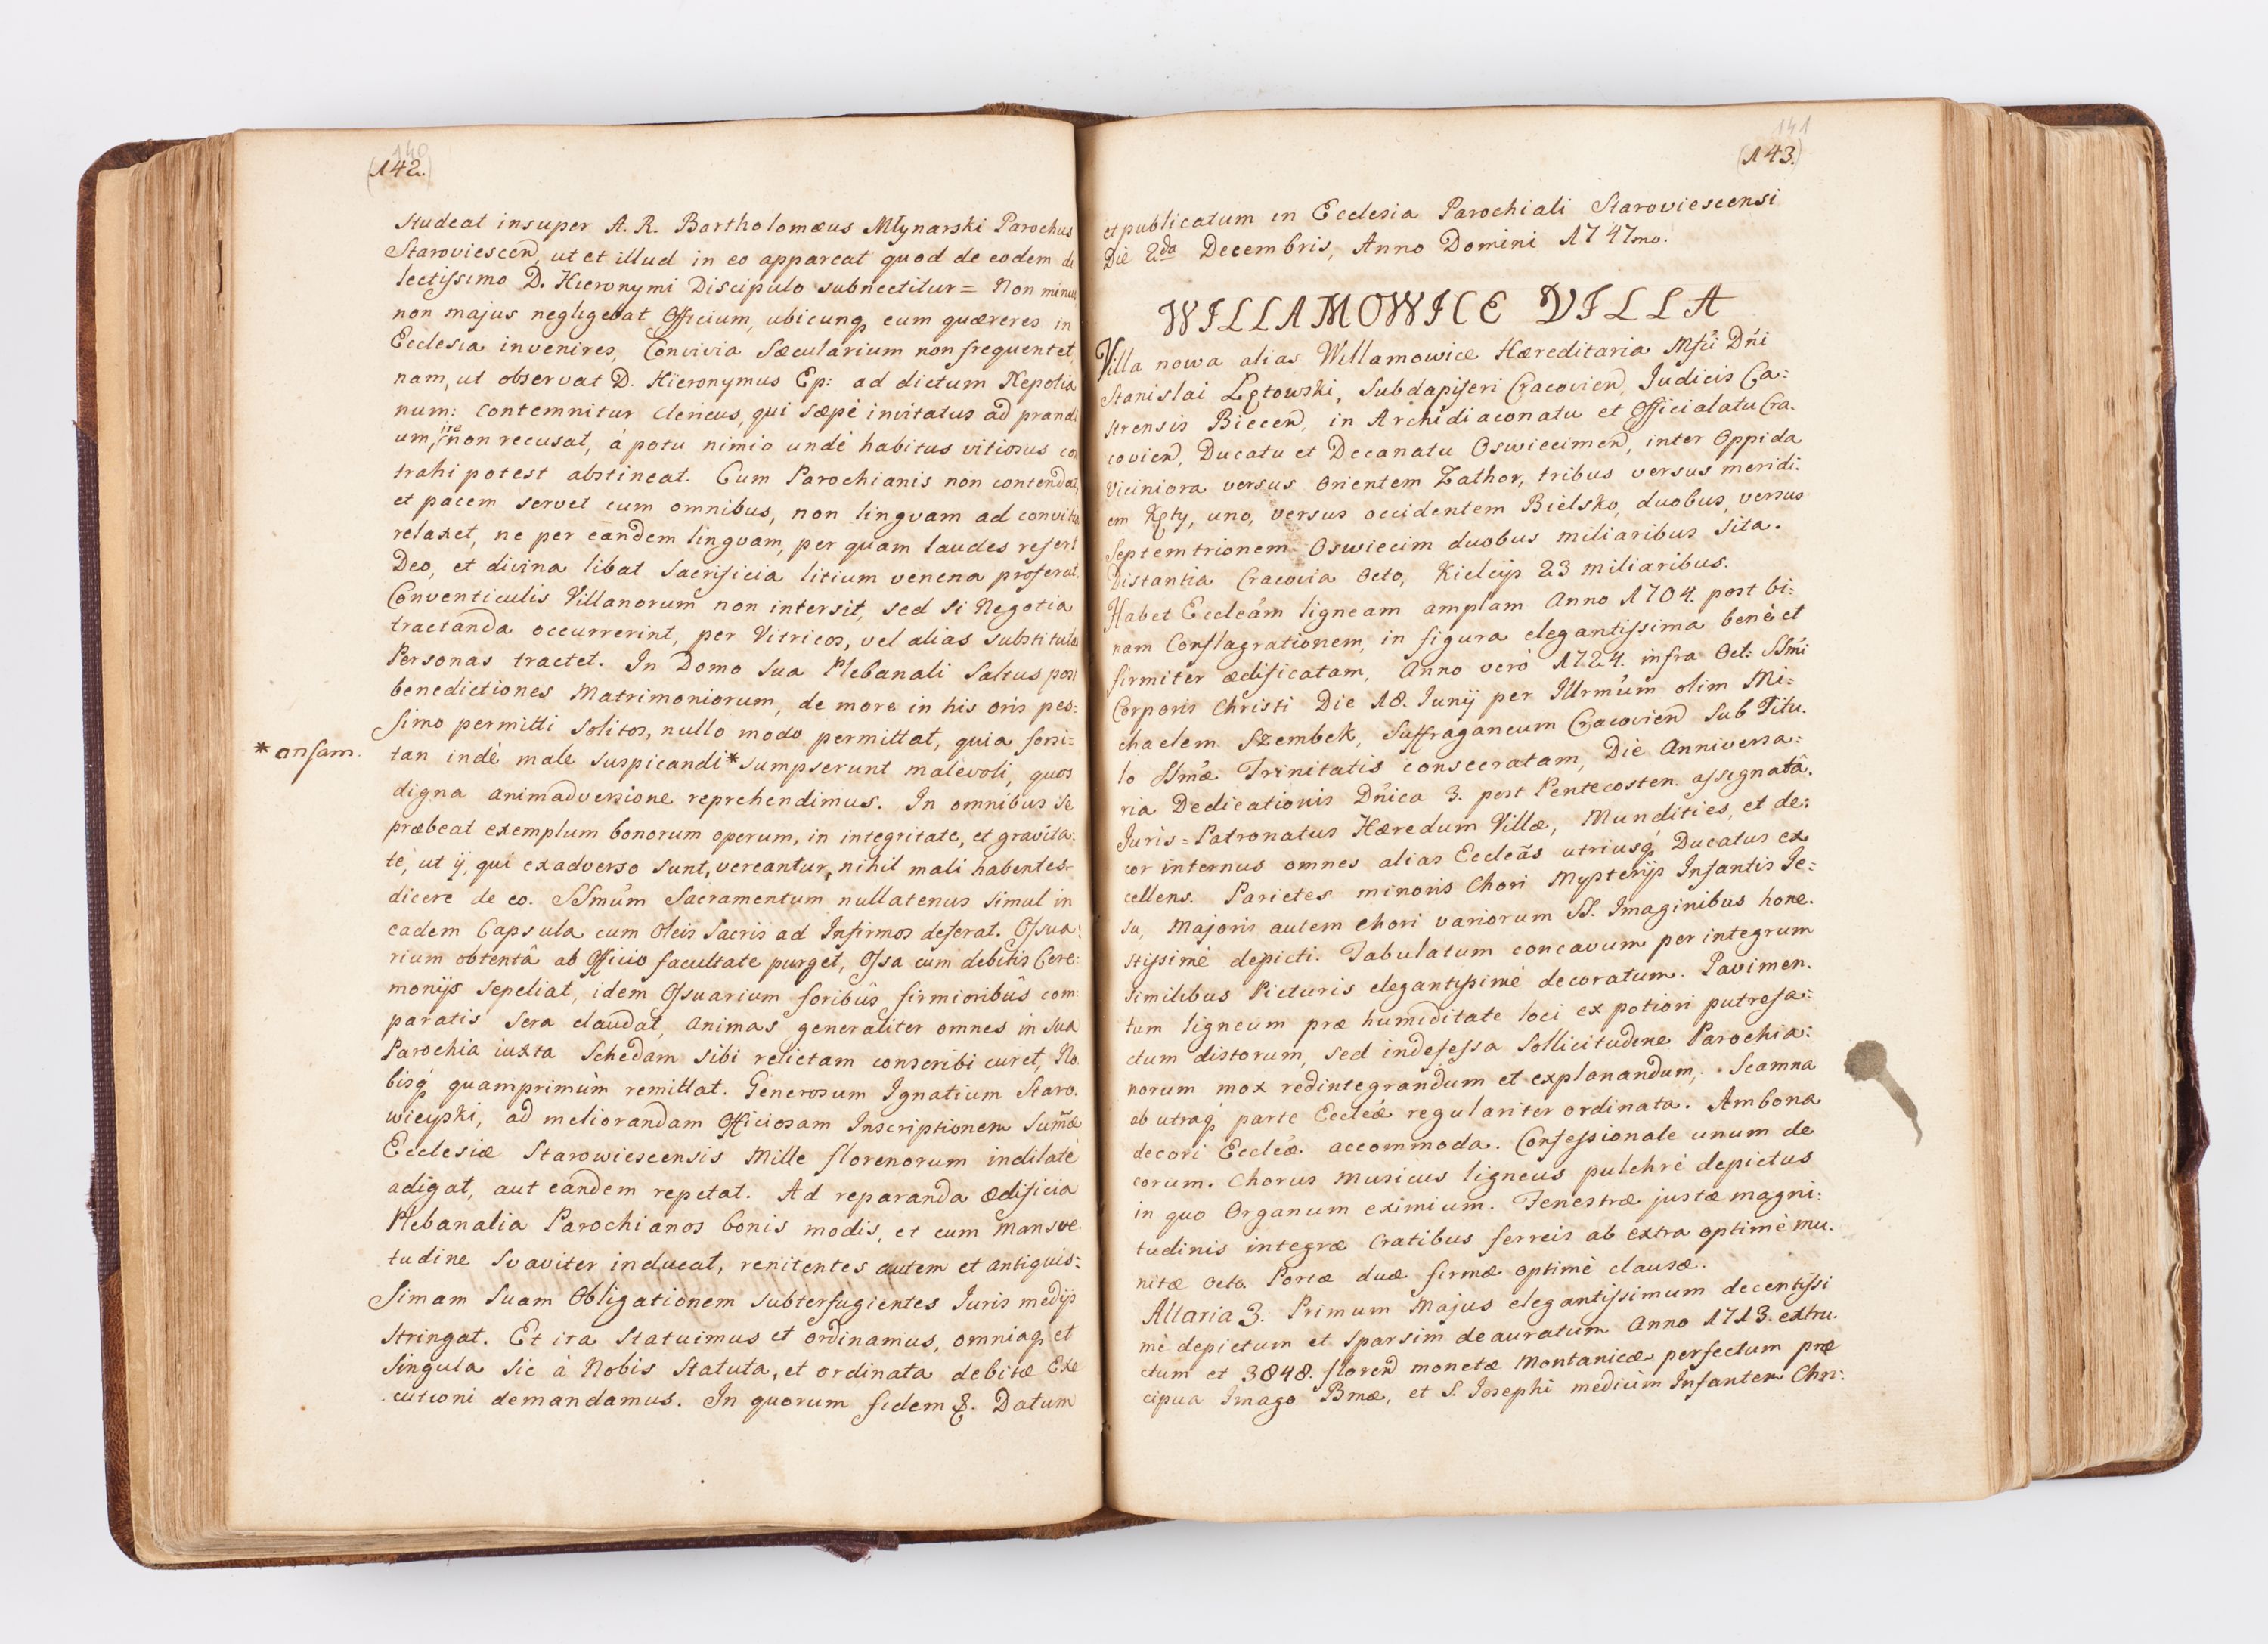 140
(142.)
Studeat insuper A. R. Bartholomæus Młynarski Parochus
Staroviescen, ut et illud in eo appareat quod de eodem di
lectissimo D. Hieronymi Discipulo subnectitur = Non minus,
non majus negligebat Officium, ubicunq, eum quæreres in
Ecclesia invenires, Convivia Sæcularium non frequentet,
nam, ut observat D. Hieronymus Ep: ad dictum Nepotia
num: contemnitur Clericus, qui sæpè invitatus ad prandi
um, ire non recusat, á potu nimio undè habitus vitiosus con
trahi potest abstineat. Cum Parochianis non contendat,
et pacem servet cum omnibus, non lingvam ad convitia
relaxet, ne per eandem lingvam, per quam laudes refert
Deo, et divina libat Sacrificia litium venena proferat.
Conventiculis Villanorum non intersit, sed si Negotia
tractanda occurrerint, per Vitricos, vel alias substitutas
Personas tractet. In Domo Sua Plebanali Saltus post
benedictiones Matrimoniorum, de more in his oris pes:
simo permitti solitos, nullo modo permittat, quia forsi:
* ansam.
tan indè male suspicandi* sumpserunt malevoli, quos
digna animadversione reprehendimus. In omnibus se
præbeat exemplum bonorum operum, in integritate, et gravita:
te, ut ij, qui exadverso sunt, vereantur, nihil mali habentes
dicere de eo. SSmúm Sacramentum nullatenus simul in
eadem Capsula cum Oleis Sacris ad Infirmos deferat. Ossua:
rium obtentâ ab Officio facultate purget, Ossa cum debitis Cere:
monijs sepeliat, idem Ossuarium foribûs firmioribûs com
paratis sera claudat, Animas generaliter omnes in sua
Parochia iuxta Schedam sibi relictam conscribi curet, No
bisq, quamprimùm remittat. Generosum Ignatium Staro.
wieyski, ad meliorandam Officiosam Inscriptionem Sum̃æ
Ecclesiæ Starowiescensis Mille florenorum indilatè
adigat, aut eandem repetat. Ad reparanda ædificia
Plebanalia Parochianos bonis modis, et cum mansve
tudine svaviter inducat, renitentes autem et antiquis:
simam suam Obligationem subterfugientes Iuris medijs
stringat. Et ita Statuimus et ordinamus, omniaq, et
singula sic à Nobis Statuta, et ordinata debitæ Exe
cutioni demandamus. In quorum fidem &. Datum
141
(143.)
et publicatum in Ecclesia Parochiali Staroviescensi
Die 2da Decembris, Anno Domini 1747mo.
WILLAMOWICE VILLA
Villa nowa alias Willamowice Hæreditaria Mfci Dńi
Stanislai Łętowski, Subdapiferi Cracovien, Iudicis Ca:
strensis Biecen, in Archidiaconatu et Officialatu Cra.
covien, Ducatu et Decanatu Oswiecimen, inter Oppida
viciniora versus Orientem Zathor, tribus versus meridi:
em Kęty, uno, versus occidentem Bielsko, duobus, versus
Septemtrionem Oswiecim duobus miliaribus sita.
Distantia Cracovia Octo, Kielcijs 23 miliaribus.
Habet Eccleám ligneam amplam Anno 1704. post bi:
nam Conflagrationem, in figura elegantissima benè et
firmiter ædificatam, Anno verò 1724. infra Oct: SSmi
Corporis Christi Die 18. Iunij per Illrmúm olim Mi:
chaelem Szembek, Suffraganeum Cracovien Sub Titu.
lo SSmæ Trinitatis consecratam, Die Anniversa:
ria Dedicationis Dńica 3. post Pentecosten assignatâ.
Juris=Patronatus Hæredum Villæ, Mundities, et de:
cor internus omnes alias Eccleãs utriusq, Ducatus ex
cellens. Parietes minoris Chori Mysterijs Infantis Ie:
su, Majoris autem Chori variorum SS. Imaginibus hone.
stissimè depicti. Tabulatum concavum per integrum
similibus Picturis elegantissimè decoratum. Pavimen.
tum ligneum præ humiditate loci ex potiori putrefa:
ctum distorum, sed indefessa sollicitudine Parochia:
norum mox redintegrandum et explanandum, Scamna
ab utraq, parte Eccleæ regulariter ordinata. Ambona
decori Eccleæ accommoda. Confessionale unum de
corum. Chorus Musicus ligneus pulchrè depictus
in quo Organum eximium. Fenestræ justæ magni:
tudinis integræ Cratibus ferreis ab extra optimè mu.
nitæ Octo. Portæ duæ firmæ optimè clausæ.
Altaria 3. Primum Majus elegantissimum decentissi
mè depictum et sparsim deauratum Anno 1713. extru.
ctum et 3848. floren monetæ Montanicæ perfectum præ
cipua Imago Bmæ, et S. Iosephi medium Infantem Chri: